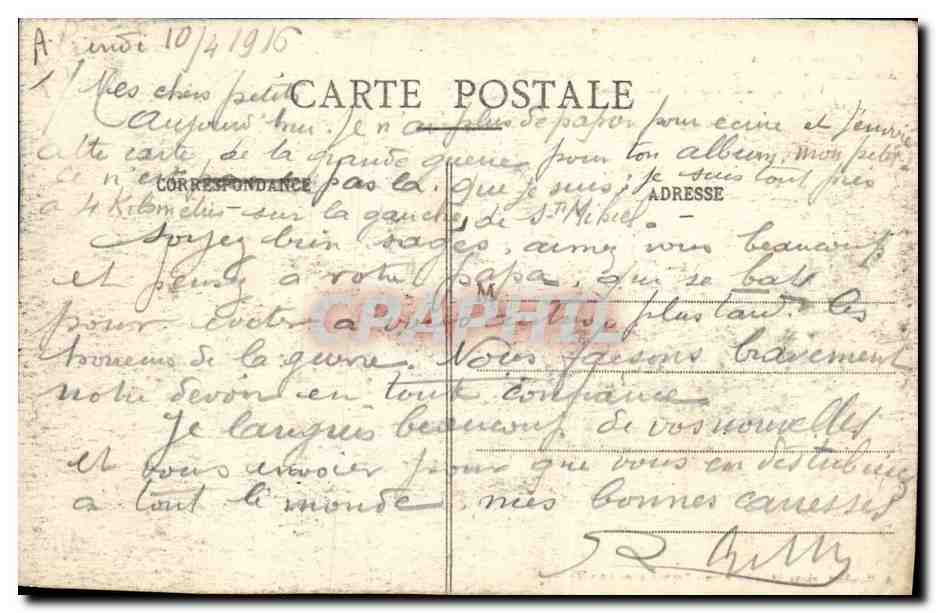 10/4 1916
Mes chers petits
CARTE POSTALE
Aujourd'hui je n'ai plus de papier pour écrire et j'envoie
cette carte de la grande guerre pour ton album, mon petit
Ce n'est pas là que je suis; je suis tout près
CORRESPONDANCE
ADRESSE
à 4 Kilomètres sur la gauche de St Mihiel
Soyez bien sages, aimez vous beaucoup
et pensez à votre papa, qui se bat
M
CPAPHIL
pour éviter à plus tard les
horreurs de la guerre. Nous faisons bravement
notre devoir en toute confiance
Je languis beaucoup de vos nouvelles
et vous envoie pour que vous en distribuiez
à tout le monde mes bonnes caresses